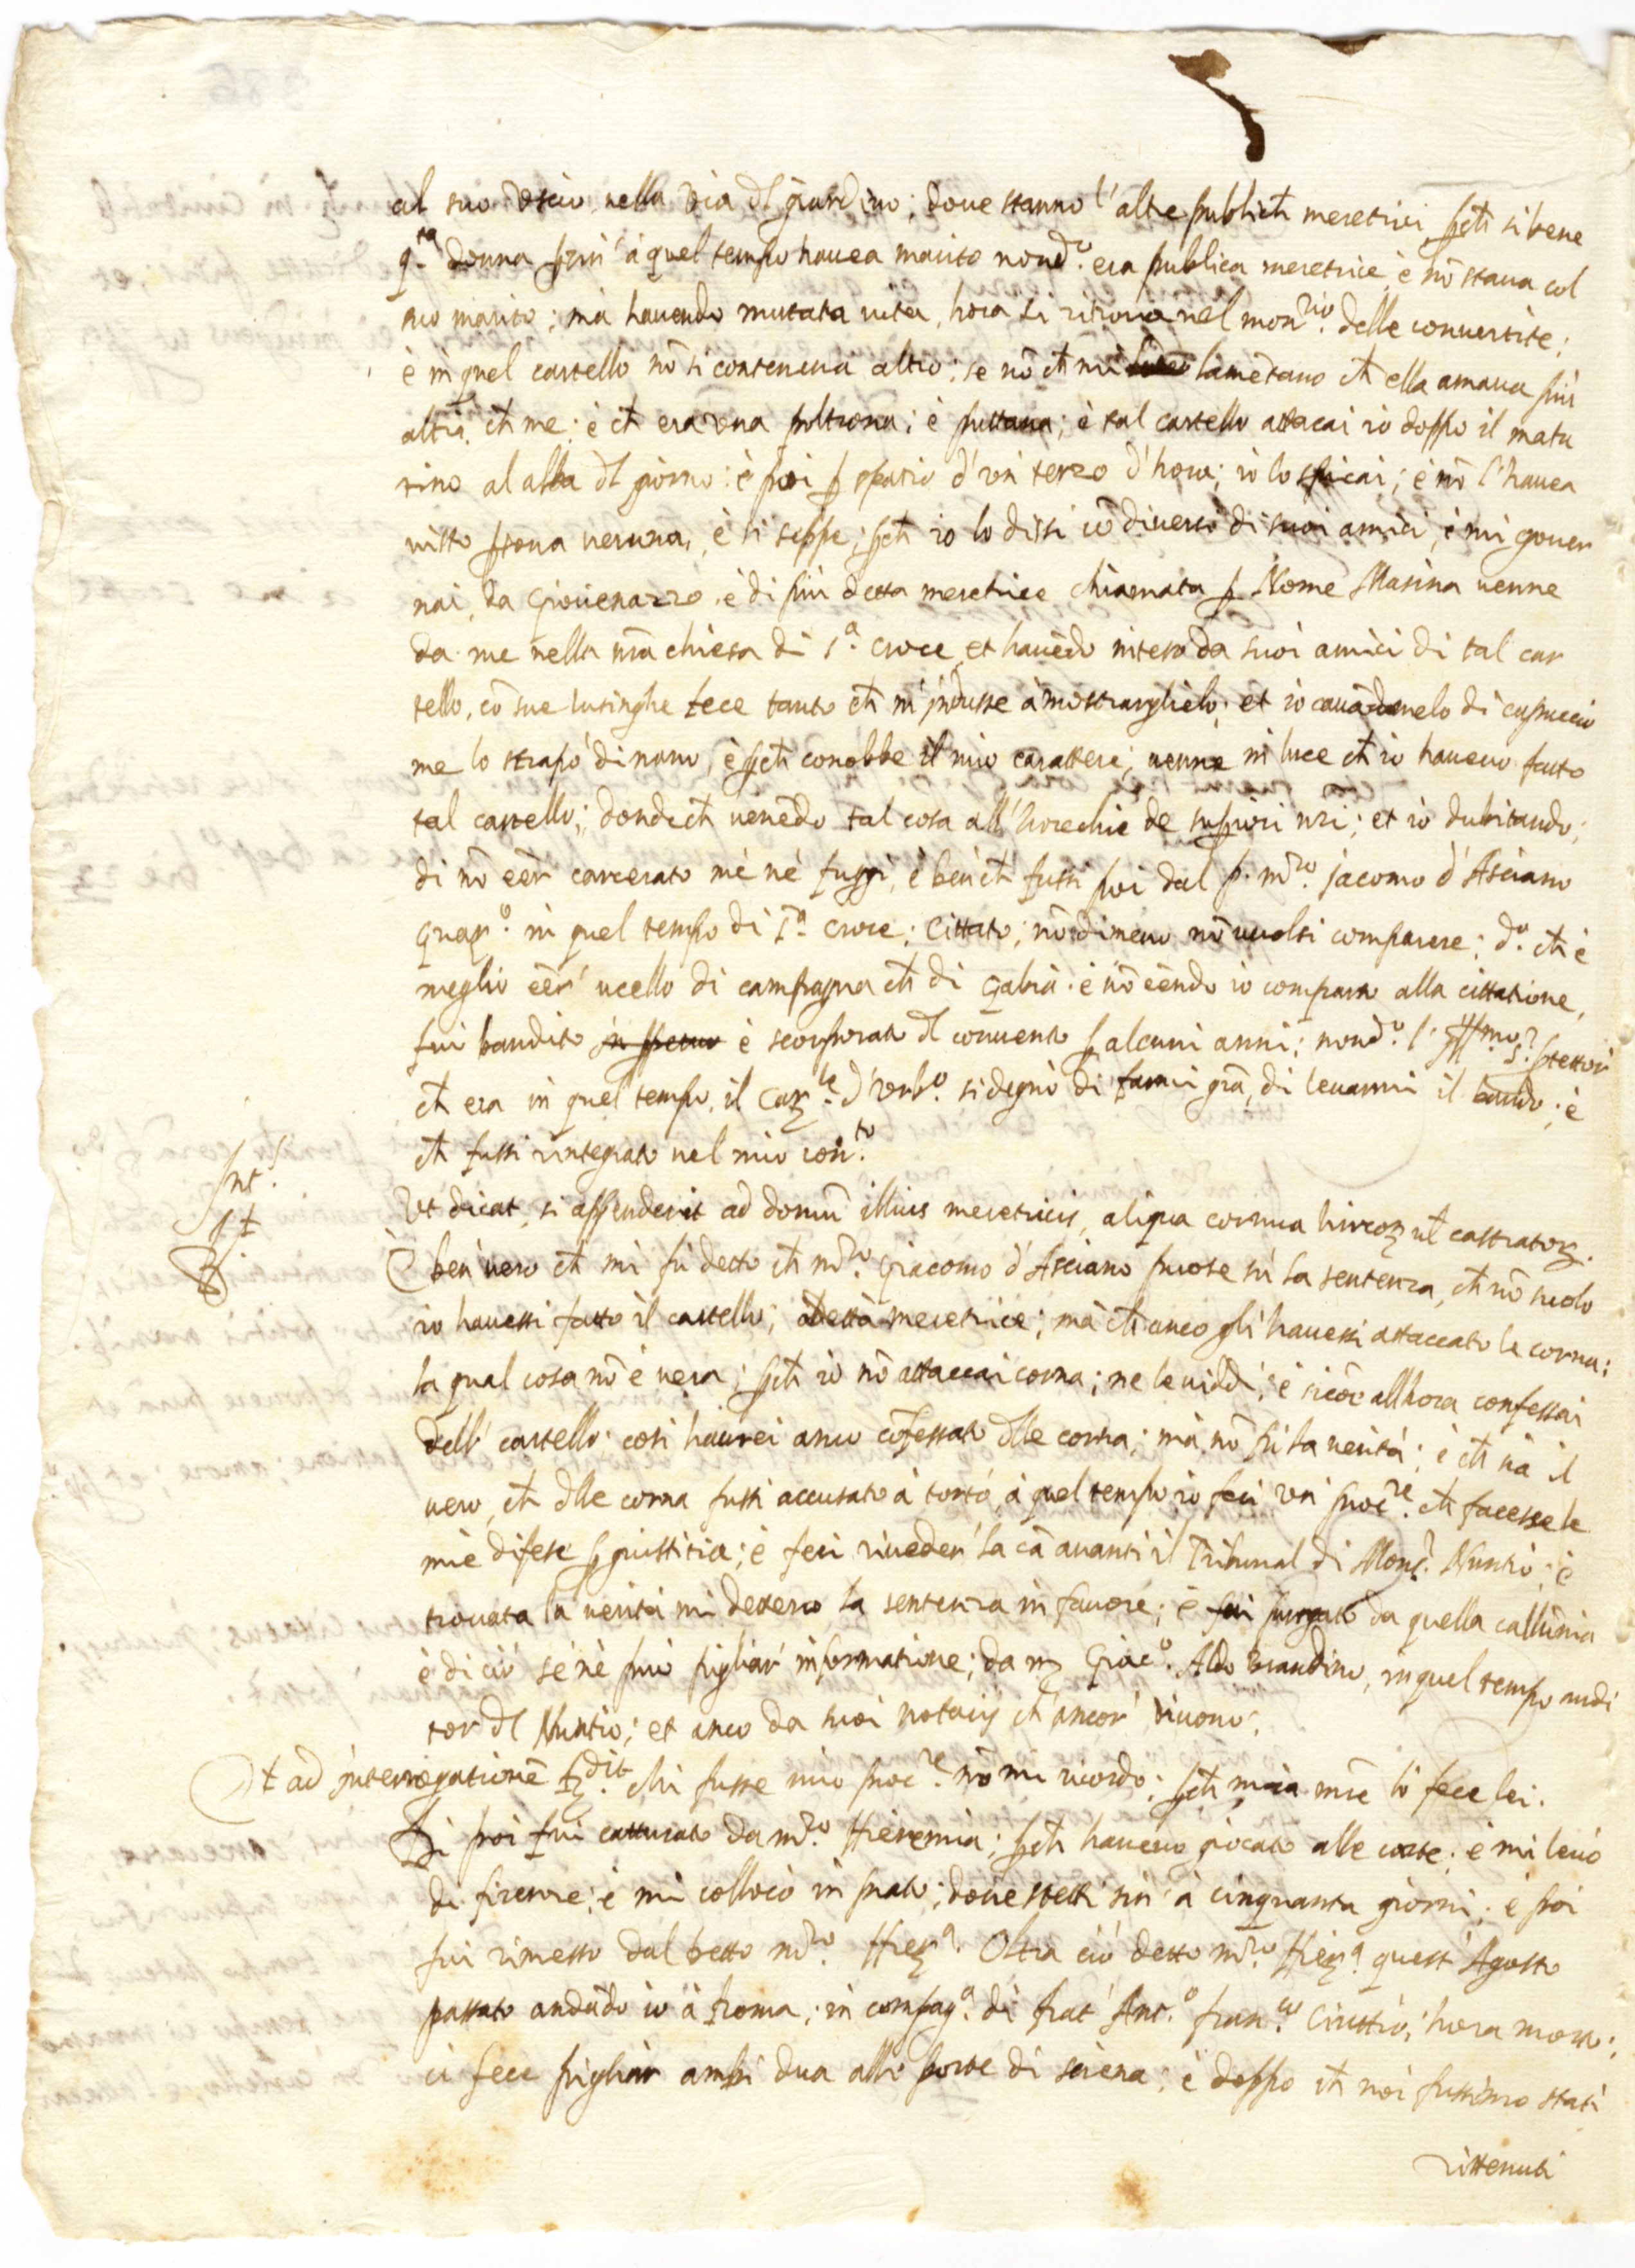 al suo uscio nella via dl giardino; doue stanno l'altre publich meretrici, pch si bene
q.ta donna sin' à quel tempo hauea marito nond.o era publica meretrice, è nō staua col
suo marito; mà hauendo mutata uita, hora si ritroua nel mon.rio delle conuertite;
è in quel cartello nō si conteneua altro; se nō ch mi lamētauo ch ella amaua più
altri ch me; è ch era una poltrona; è puttana; è tal cartello attacai io doppo il matu
tino al alba dl giorno: è poi p spatio d'un terzo d'hora; io lo spicai; è nō l'hauea
uisto psona ueruna, è si seppe; pch io lo dissi cō diuersi di suoi amici, è mi gouer
nai, da Giouenazzo. è di più detta meretrice chiamata p Nome Masina uenne
da me nella nra chiesa di s.a croce, et hauēdo inteso da suoi amici di tal car
tello, cō sue lusinghe fece tanto ch m'indusse à mostrarglielo; et io cauādomelo di capuccio
me lo strapò di mano, è pch conobbe il mio carattere; uenne in luce ch io haueuo fatto
tal cartello; dondech uenēdo tal cosa all'horechie de supiori nri; et io dubitando,
di nō eēr carcerato me ne fuggi, è bench fussi poi dal p. m.ro Jacomo d'Asciano
Guar.o in quel tempo di S.a Croce; Cittato; nōdimeno nō uuolsi comparere; d.o ch è
meglio eēr' ucello di campagna ch di gabia. è nō eēndo io comparso alla cittatione,
fui bandito è scorporato dl conuento p alcuni anni; nond.o l'Ill.mo S. Ptettor
ch era in quel tempo, il Car.le d'Urb.o si degnò di farmi grā, di leuarmi il bando; è
ch fussi rintegrato nel mio con.to
Int.s
Ut dicat, si appenderit ad domū illius meretricis, aliqua cornua hircorū ul castratorū.
È ben uero ch mi fù detto ch m.ro Giacomo d'Asciano puose sù la sentenza, ch nō suolo
io hauessi fatto il cartello; à detta meretrice; mà ch anco gli hauessi attaccato le corna;
la qual cosa nō è uera; pch io nō attaccai corna; ne le uiddi; è sicōe allhora confessai
dell' cartello; così haurei anco cōfessato dlle corna; mà nō fù la uerità; è ch sia il
uero, ch dlle corna fussi accusato à torto, à quel tempo io feci un proc.re ch facesse le
mie difese p giustitia; è feci riueder' la cā auanti il Tribunal di Mons.r Nuntio; è
trouata la uerità mi dettero la sentenza in fauore; è fui purgato da quella callūnia
è di ciò se nè può pigliar' informatione; da m Giac.o Aldobrandino, in quel tempo audi
tor dl Nuntio; et anco da suoi notarij ch ancor' uiuono.
Et ad interrogationē dit. chi fusse mio proc.re nō mi ricordo; pch mia mrē lo fece lei.
Di poi fui catturato da m.ro Hieremia; pch haueuo giocato alle carte; è mi leuò
di firenze; è mi collocò in prato; doue stetti sin' à cinquanta giorni; è poi
fui rimesso dal detto m.ro Hier.a Oltra ciò detto m.ro Hier.a quest' Agosto
passato andādo io à Roma; in compag.a di frat' Ant.o fran.co hora morto;
ci fece pigliar ambi dua alle porte di siena; è doppo ch noi fussimo stati
rittenuti